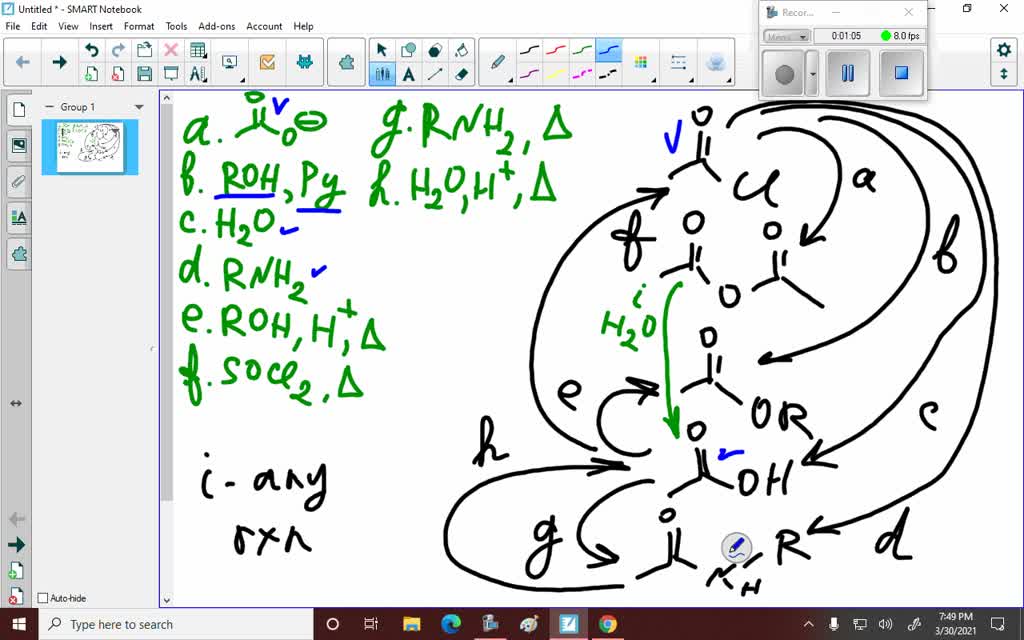 Untitled * - SMART Notebook
Recor...
File Edit View Insert Format Tools Add-ons Account Help
Menu
0:01:05
8.0 fps
Group 1
a. O O⊖
g. RNH2, Δ
b. ROH, Py
h. H2O, H+, Δ
c. H2O
d. RNH2
e. ROH, H+, Δ
f. SOCl2, Δ
i - any
rxn
O
Cl
a
f
O
O
O
b
i
H2O
O
e
OR
c
h
O
OH
g
O
N
H
R
d
Auto-hide
Type here to search
7:49 PM
3/30/2021